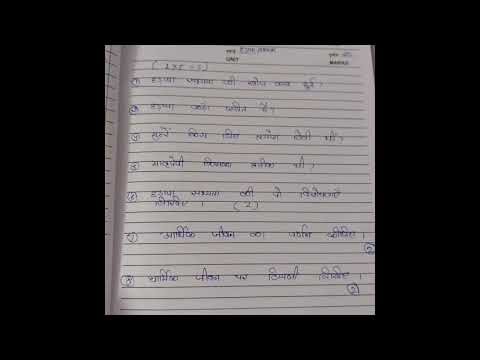 हड़प्पा सभ्यता
UNIT
MARKS
① हड़प्पा सभ्यता की खोज कब हुई?
② हड़प्पा कहाँ स्थित है?
③ मुहरें किस लिए प्रयोग होती थीं?
④ मातृदेवी किसका प्रतीक थी?
हड़प्पा सभ्यता की दो विशेषताएँ
लिखिए। (2)
आर्थिक जीवन का वर्णन कीजिए।
धार्मिक जीवन पर टिप्पणी लिखिए।